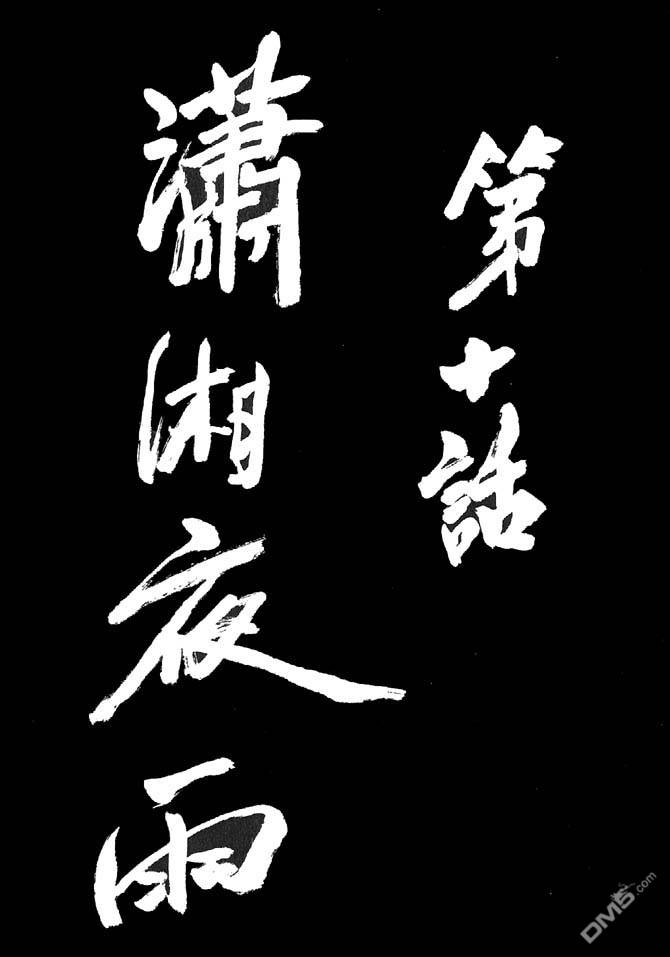 第十話
瀟湘夜雨
DM5.com